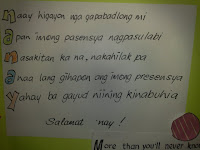 naay higayon nga gapabadlong mi
apan imong pasensya nagpasulabi
nasakitan ka na, nakahilak pa
anaa lang gihapon ang imong presensya
yahay ba gayud niining kinabuhia
Salamat 'nay!
More than you'll never know